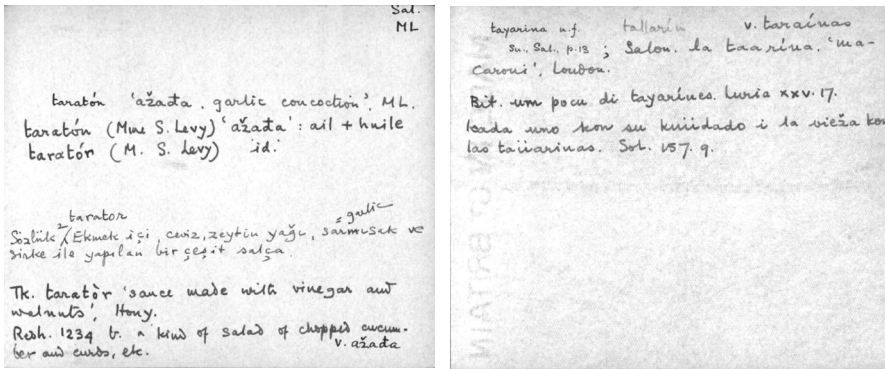 Sal.
ML
taratón 'ažađa, garlic concoction', ML.
taratón (Mme S. Levy) 'ažađa': ail + huile
taratór (M. S. Levy) id.'
tarator = garlic
Sözlük² / Ekmek içi, ceviz, zeytin yağı, sarmısak ve
sirke ile yapılan bir çeşit salça.
Tk. taratòr 'sauce made with vinegar and
walnuts', Hony.
Redh. 1234 b. a kind of salad of chopped cucum-
ber and curds, etc.
v. ažađa
tayarina n.f. tallarín v. taraínas
Su., Sal., p.13; Salon. la taarína. 'ma-
caroni', London.
Bit. um pocu di tayarínes. Luria xxv. 17.
kada uno kon su kuiidado i la vieža kon
las taiiarinas. Sol. 157. 9.